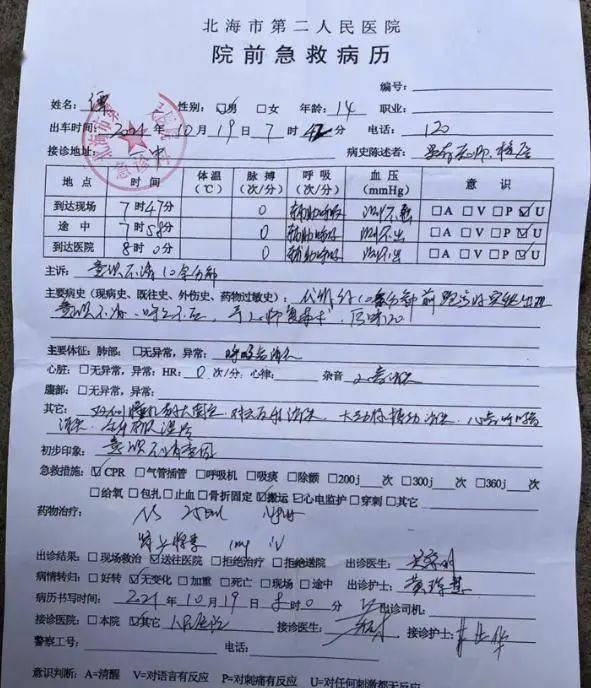 北海市第二人民医院
院前急救病历
编号：
姓名：谭 性别：☑男 □女 年龄：14 职业：
出车时间：2021年10月19日7时42分 电话：120
接诊地址：一中 病史陈述者：
北海市第 人民医院 急诊科
地点 时间 体温(℃) 脉搏(次/分) 呼吸(次/分) 血压(mmHg) 意识
到达现场 7时47分 0 辅助呼吸 测不出 □A □V □P ☑U
途中 7时58分 0 辅助呼吸 测不出 □A □V □P ☑U
到达医院 8时0分 0 辅助呼吸 测不出 □A □V □P ☑U
主诉：意识不清10余分钟
主要病史（现病史、既往史、外伤史、药物过敏史）：代诉约10余分钟前跑步时突然出现
意识不清、呼之不应
主要体征：肺部：□无异常，异常：呼吸音消失
心脏：□无异常，异常：HR：0次/分，心律： 杂音 心音消失
腹部：□无异常，异常：
其它：双侧瞳孔散大固定，对光反射消失，大动脉搏动消失
消失
初步印象：意识不清查因
急救措施：☑CPR □气管插管 □呼吸机 □吸痰 □除颤 □200j 次 □300j 次 □360j 次
□给氧 □包扎 □止血 □骨折固定 ☑搬运 ☑心电监护 □穿刺 □其它
药物治疗：NS 250ml
肾上腺素 1mg iv
出诊结果：□现场救治 ☑送往医院 □拒绝治疗 □拒绝送院 出诊医生：
病情转归：□好转 ☑无变化 □加重 □死亡 □现场 □途中 出诊护士：
病历书写时间：2021年10月19日8时0分 出诊司机：
接诊医院：□本院 ☑其它 人民医院 接诊医生： 接诊护士：
警察工号： 电话：
意识判断：A=清醒 V=对语言有反应 P=对刺痛有反应 U=对任何刺激都无反应